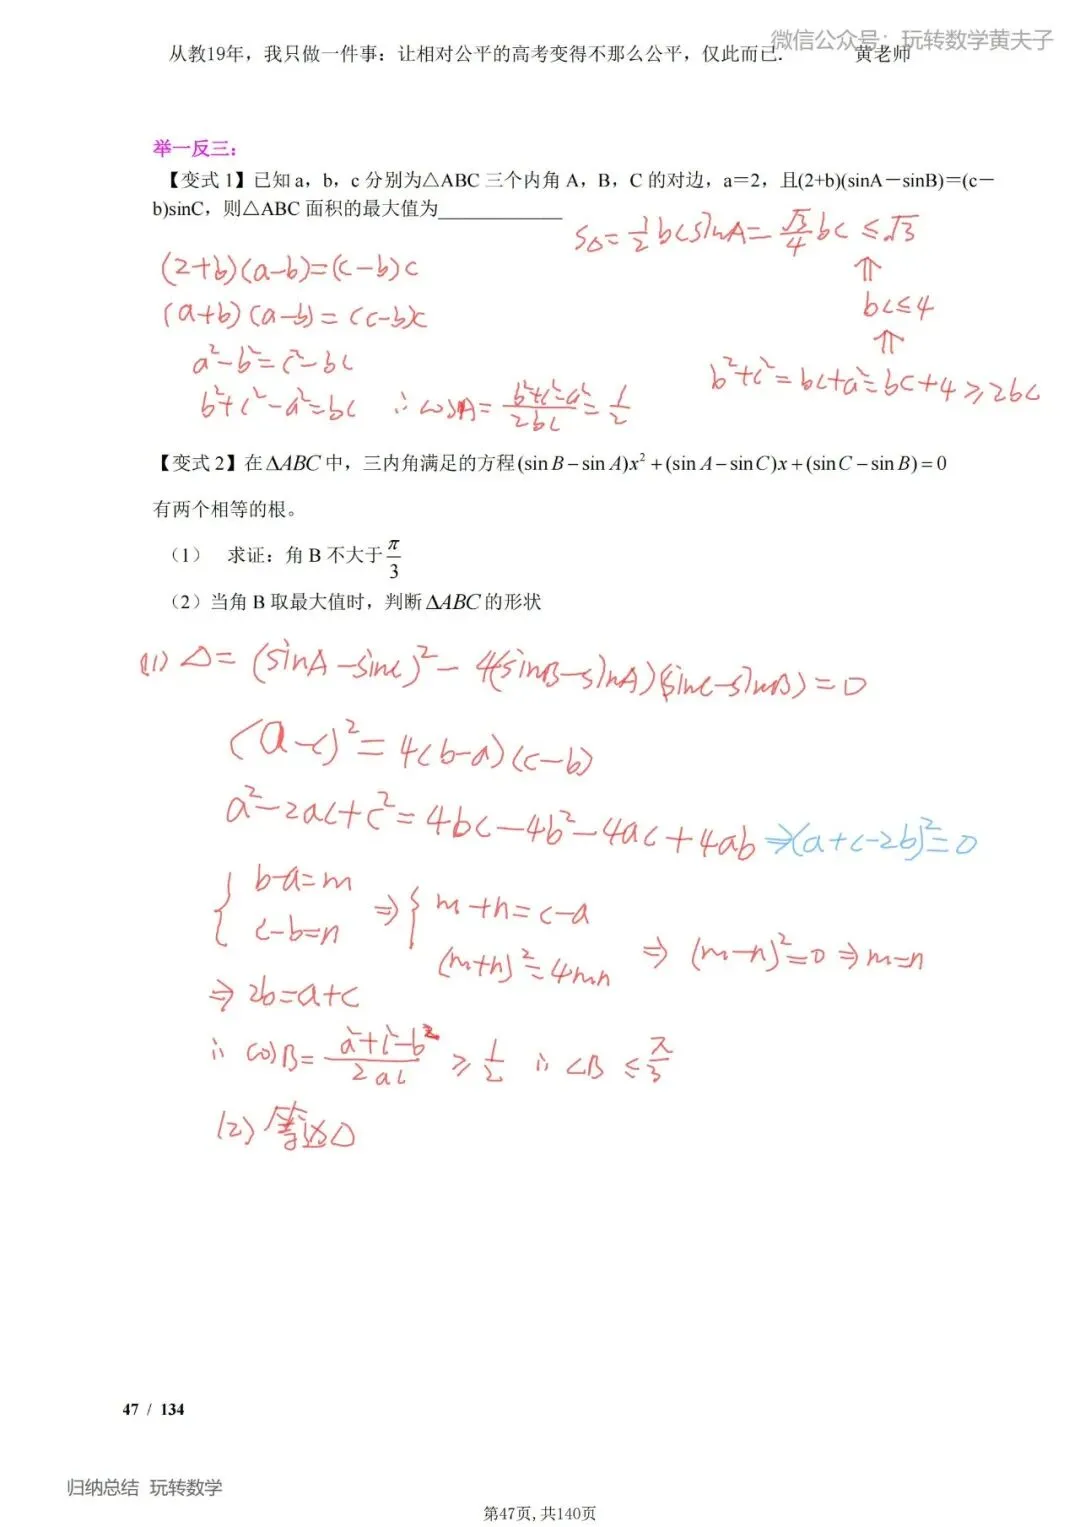 微信公众号：玩转数学黄夫子
从教19年，我只做一件事：让相对公平的高考变得不那么公平，仅此而已. 黄老师
举一反三：
【变式 1】已知 a，b，c 分别为△ABC 三个内角 A，B，C 的对边，a＝2，且(2+b)(sinA－sinB)＝(c－
b)sinC，则△ABC 面积的最大值为____________
S△=1/2 bcsinA=√3/4 bc≤√3
(2+b)(a-b)=(c-b)c
⇑
bc≤4
(a+b)(a-b)=(c-b)c
⇑
a²-b²=c²-bc
b²+c²=bc+a²=bc+4≥2bc
b²+c²-a²=bc ∴cosA=(b²+c²-a²)/2bc=1/2
【变式 2】在 ΔABC 中，三内角满足的方程(sin B－sin A)x²＋(sin A－sin C)x＋(sin C－sin B)＝0
有两个相等的根。
（1） 求证：角 B 不大于 π/3
（2）当角 B 取最大值时，判断 ΔABC 的形状
(1) Δ=(sinA-sinC)²-4(sinB-sinA)(sinC-sinB)=0
(a-c)²=4(b-a)(c-b)
a²-2ac+c²=4bc-4b²-4ac+4ab⇒(a+c-2b)²=0
{ b-a=m
c-b=n ⇒ { m+n=c-a
(m+n)²=4mn ⇒ (m-n)²=0⇒m=n
⇒ 2b=a+c
∴ cosB=(a²+c²-b²)/2ac ≥1/2 ∴∠B≤π/3
(2) 等边△
47 / 134
归纳总结 玩转数学
第47页,共140页